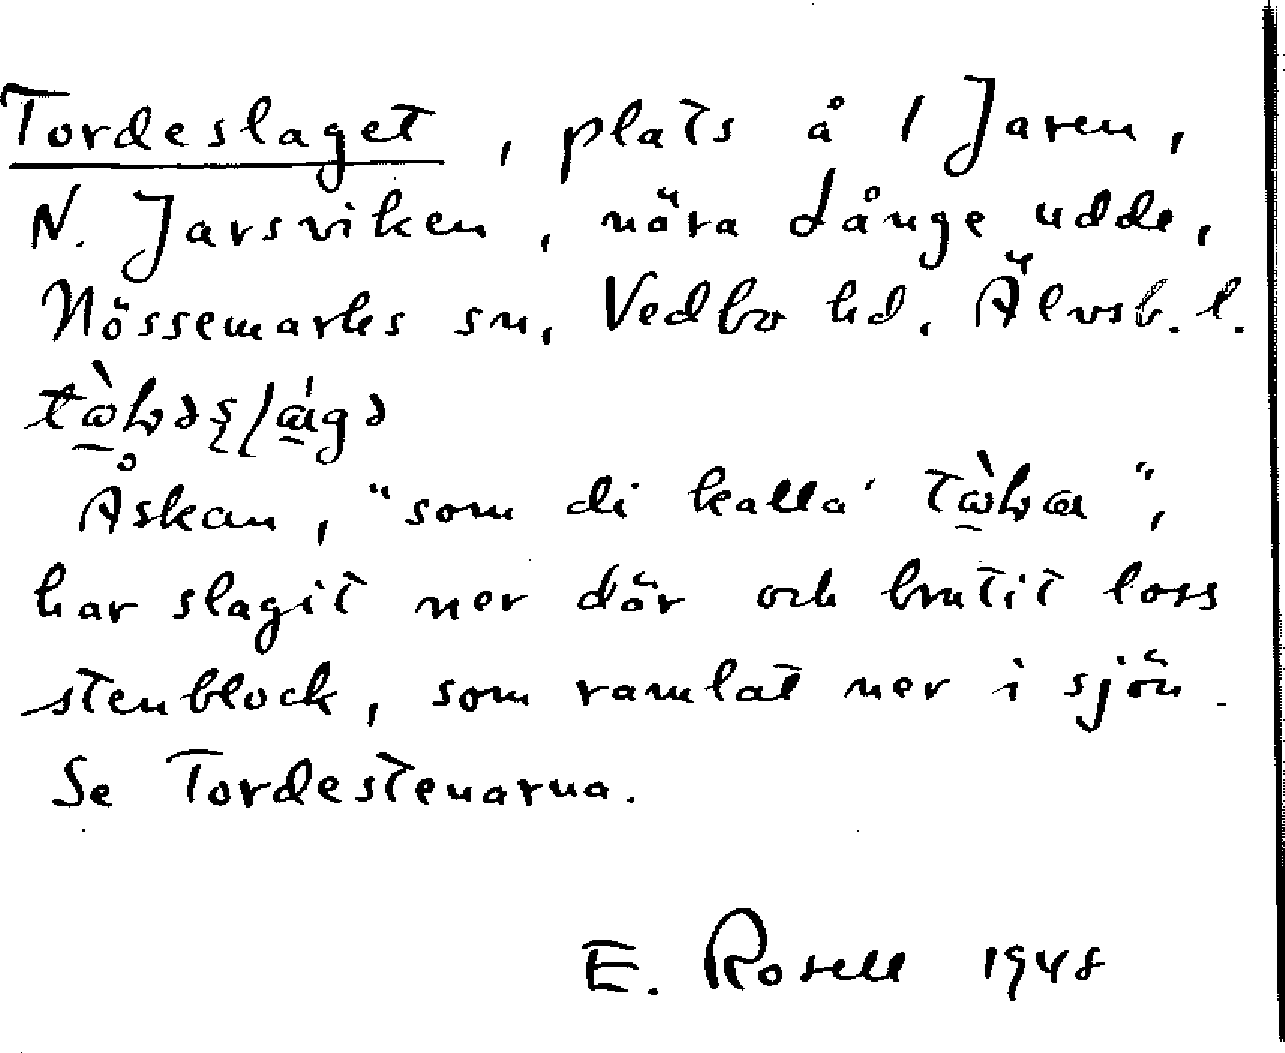 Tordeslaget, plats å 1 Jaren,
N. Jarsviken, nära Långe udde,
Nössemarks sn, Vedbo hd. Älvsb. l.
Åskan, "som di kalla'
har slagit ner där och brutit loss
stenblock, som ramlat ner i sjön.
Se Tordestenarna.
E. Rosell 1948